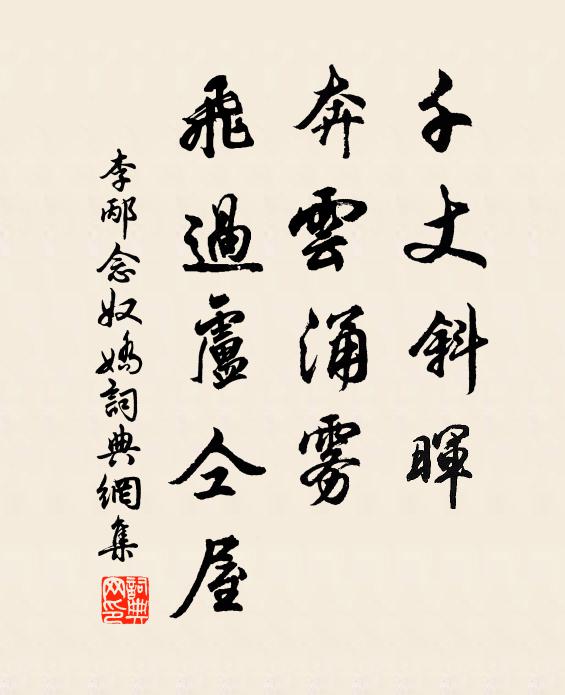 千丈斜暉
奔雲涌霧
飛過盧仝屋
李邴念奴嬌詞典網集
詞典網印